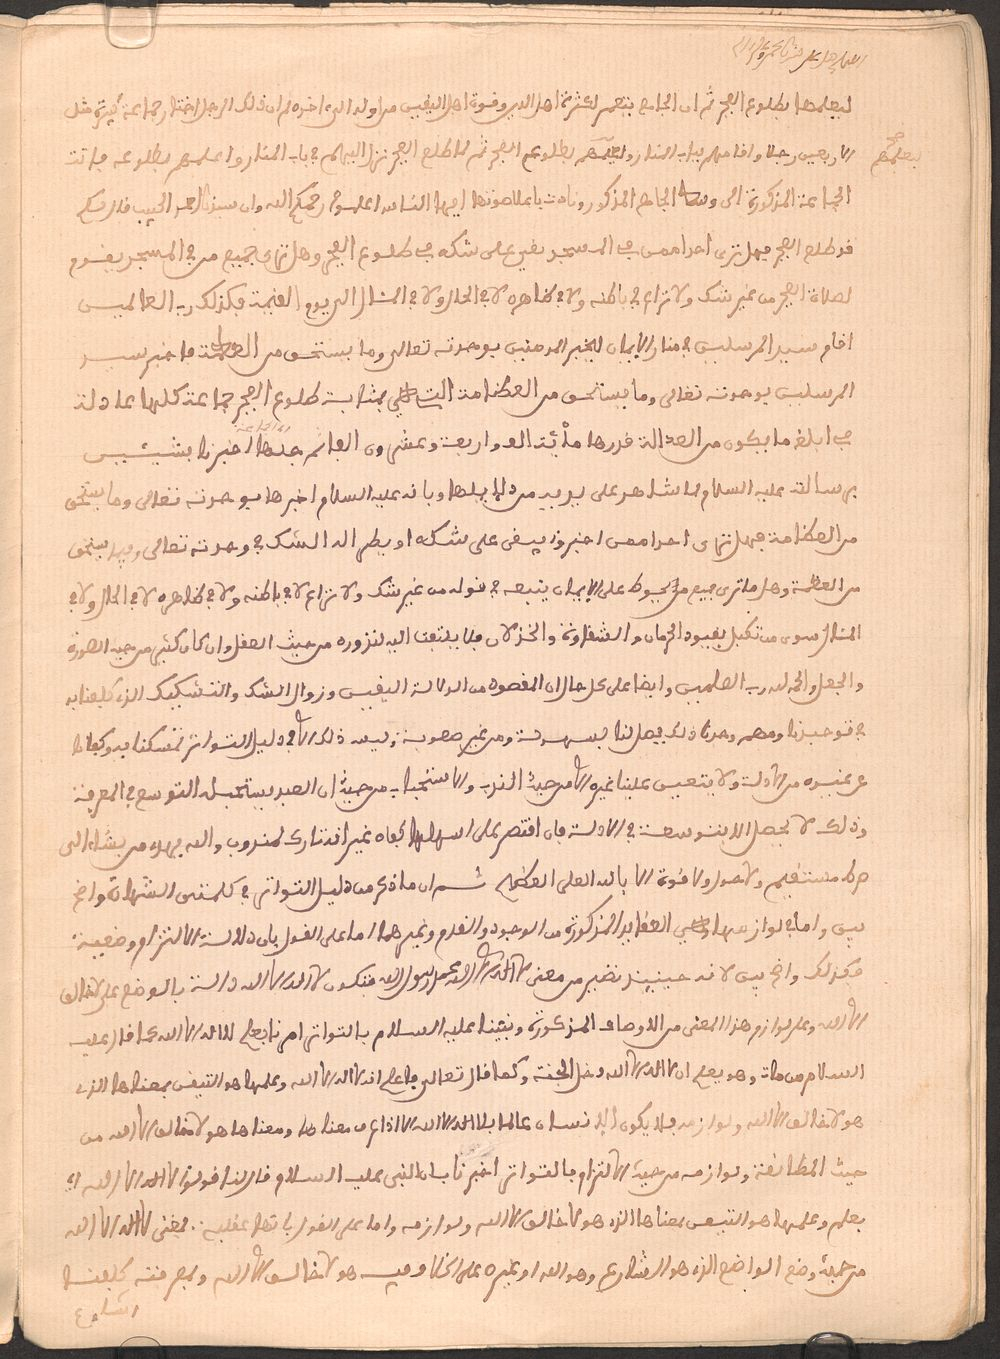 ليعلمها بطلوع الفجر ثم ان الجامع بنعمر لكثرة اهل الدين وقوة اهل اليقين من اوله الى اخره ثم ان ذلك الرجل اختار جماعة كثيرة مثل
الاربعين رجلا واقامهم بباب المنار بطلوع الفجر ثم لما طلع الفجر نزل اليهم في باب المنار واعلمهم بطلوعه فاتت
ليعلمهم
الجماعة المذكورة الى وسط الجامع المذكور ونادت باعلا صوتها ايها الناس اعلموا رحمكم الله وان سيدنا الحبيب قال لكم
قد طلع الفجر فهل ترى احدا ممن في المسجد بقي على شكه في طلوع الفجر وهل ترى جميع من في المسجد يقوم
لصلاة الفجر من غير شك ولا نزاع في باطنه ولا في ظاهره لا في الحال ولا في المثال الى يوم القيمة فكذلك رب العالمين
اقام سيد المرسلين في منار الايمان ليخبر المومنين بوحدته تعالى وما يستحق من العظمة فاخبر سيد
المرسلين بوحدته تعالى وما يستحق من العظامة التي هي بمثابة طلوع الفجر جماعة كلها عادلة
في ابلغ ما يكون من العدالة قدرها مائة الف واربعة وعشرون الفا اخبرنا بشيئين
برسالته عليه السلام لما شاهد على يديه من دلايلها وبانه عليه السلام اخبرها بوحدته تعالى وما يستحق
من العظامة فهل ترى احدا ممن اخبروا يبقى على شكه او يطرا له الشك في وحدته تعالى وفيما يستحق
من العظمة وهل ما ترى جميع من يحوط على الايمان يتبعه في قوله من غير شك ولا نزاع لا في باطنه ولا في ظاهره لا في الحال ولا في
المثال سوى من تكبل بقيود الحرمان والشقاوة والخذلان فلا يلتفت اليه لنزوره من حيث العقل وان كان كثير من حيث الصورة
والجعل والحمد لله رب العلمين وايضا على كل حال ان المقصود من الدلالة اليقين وزوال الشك والتشكيك الذي كلفنا به
في توحيدنا ومهما وجدنا ذلك يحصل لنا بسهولة ومن غير صعوبة وليس ذلك الا في دليل التواتر تمسكنا به وكفانا
عن غيره من الادلة ولا يتعين علينا غيره الا من حيث الندب والاستحباب من حيث ان العبد يستحب له التوسع في المعرفة
وذلك لا يحصل الا بتوسعة في الادلة فان اقتصر على اسهلها كفاه غير انه تارك لمندوب والله يهدي من يشاء الى
صراط مستقيم ولا حول ولا قوة الا بالله العلي العظيم ثم ان ما ذكر من دليل التواتر في كلمتي الشهادة واضح
بين واما في لوازمها التي هي العقايد المذكورة من الوجود والقدم وغيرهما اما على القول بان دلالة الالتزام وضعية
فكذلك واضح بين لانه حينئذ نظير من معنى لا اله الا الله محمد رسول الله فتكون لا اله الا الله دالة بالوضع على لا خالق
الا الله وعلى لوازم هذا المعنى من الاوصاف المذكورة ونبينا عليه السلام بالتواتر امرنا بعلم لا اله الا الله كما قال عليه
السلام من مات وهو يعلم ان لا اله الا الله دخل الجنة وكما قال تعالى فاعلم انه لا اله الا الله وعلمها هو التيقن بمعناها الذي
هو لا خالق الا الله ولوازمه فلا يكون الانسان عالما بلا اله الا الله الا اذا عرف معناها ومعناها هو لا خالق الا الله من
حيث المطابقة ولوازمه من حيث الالتزام بالتواتر اخبرنا بان النبي عليه السلام قال لنا قولوا لا اله الا الله اي
بعلم وعلمها هو التيقن بمعناها الذي هو لا خالق الا الله ولوازمه واما على القول بانها عقلية فمعنى لا اله الا الله
من حيث وضع الواضع الذي هو الشارع وهو الله او غيره على الخلاف فيه هو لا خالق الا الله وبمعرفته كلفنا
الشارع